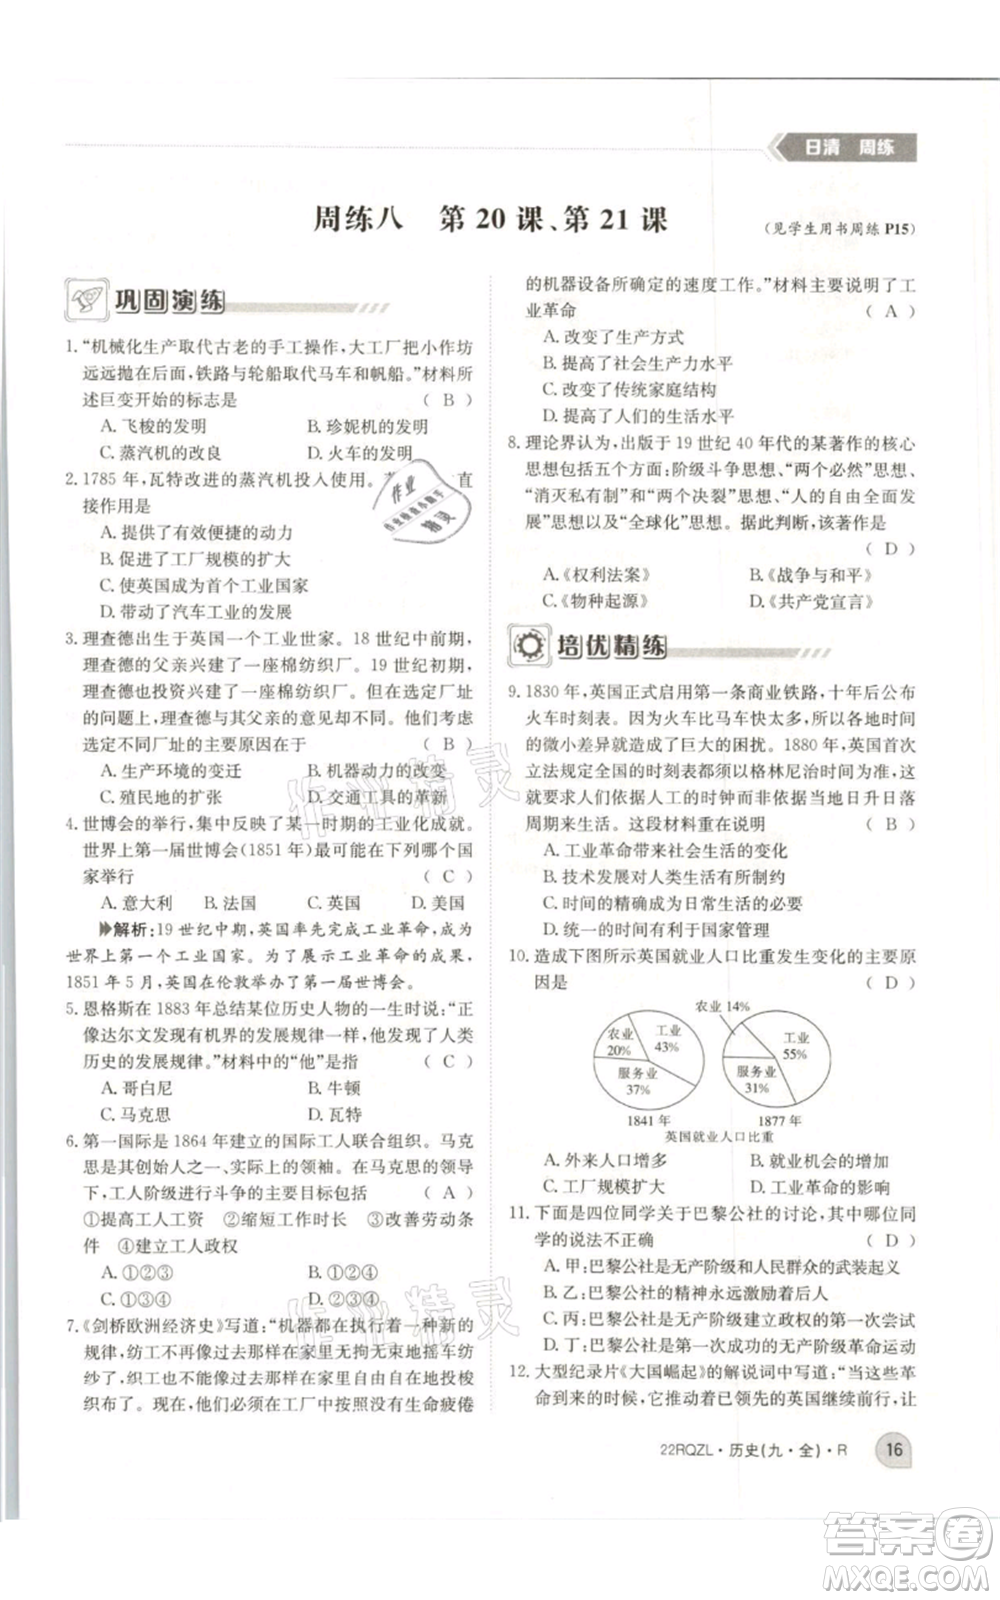 日清 周练
周练八 第20课、第21课
(见学生用书周练P15)
巩固演练
1.“机械化生产取代古老的手工操作,大工厂把小作坊
远远抛在后面,铁路与轮船取代马车和帆船。”材料所
述巨变开始的标志是 ( B )
A.飞梭的发明 B.珍妮机的发明
C.蒸汽机的改良 D.火车的发明
2.1785年,瓦特改进的蒸汽机投入使用。 直
接作用是
A.提供了有效便捷的动力
B.促进了工厂规模的扩大
C.使英国成为首个工业国家
D.带动了汽车工业的发展
3.理查德出生于英国一个工业世家。18世纪中前期,
理查德的父亲兴建了一座棉纺织厂。19世纪初期,
理查德也投资兴建了一座棉纺织厂。但在两座厂址
的问题上,理查德与其父亲的意见相左。他们考虑
选定不同厂址的主要原因在于 ( B )
A.生产环境的变迁 B.机器动力的改变
C.殖民地的扩张 D.交通工具的革新
4.世博会的举行,集中反映了某一时期的工业化成就。
世界上第一届世博会(1851年)最可能在下列哪个国
家举行 ( C )
A.意大利 B.法国 C.英国 D.美国
解析:19世纪中期,英国率先完成工业革命,成为
世界上第一个工业国家。为了展示工业革命的成果,
1851年5月,英国在伦敦举办了第一届世博会。
5.恩格斯在1883年总结某位历史人物的一生时说:“正
像达尔文发现有机界的发展规律一样,他发现了人类
历史的发展规律。”材料中的“他”是指 ( C )
A.哥白尼 B.牛顿
C.马克思 D.瓦特
6.第一国际是1864年建立的国际工人联合组织。马克
思是第一国际的创始人之一,实际上的领袖。在马克思的领导
下,工人阶级进行斗争的主要目标包括 ( A )
①提高工人工资 ②缩短工作时间 ③改善劳动条
件 ④建立工人政权
A.①②③ B.①②④
C.①③④ D.②③④
7.《剑桥欧洲经济史》写道:“机器都在执行着一种新的
规律,此前纺纱工在家里无拘无束地踩着踏板
纺纱,织工也可以随心所欲地在家里用手投梭
织布了。而现在,他们必须在工厂中按照不知疲倦
的机器设备所确定的速度工作。”材料主要说明了工
业革命 ( A )
A.改变了生产方式
B.提高了社会生产力水平
C.改变了传统家庭结构
D.提高了人们的生活水平
8.理论界认为,出版于19世纪40年代的某著作的核心
思想包括五个方面:阶级斗争思想、“两个必然”思想、
“消灭私有制”和“两个决裂”思想、“人的自由全面发
展”思想以及“全球化”思想。据此判断,该著作是
( D )
A.《权利法案》 B.《战争与和平》
C.《物种起源》 D.《共产党宣言》
培优精练
9.1830年,英国正式启用第一条商业铁路,十年后公布
火车时刻表。因为火车比马车快太多,所以各地时间
的微小差异就造成了巨大的困扰。1880年,英国首次
立法规定全国的时刻表都须以格林尼治时间为准,要
求人们依据人工的时钟而非依据当地日升日落
周期来生活。这段材料重在说明 ( B )
A.工业革命带来社会生活的变化
B.技术发展对人类生活有所制约
C.精确时间成为日常生活的必要
D.统一时间有利于国家管理
10.造成下图所示英国就业人口比重发生变化的主要原
因是 ( D )
农业 20% 工业 43% 服务业 37%
农业14% 工业 55% 服务业 31%
1841年 1877年
英国就业人口比重
A.外来人口增多 B.就业机会的增加
C.工厂规模扩大 D.工业革命的影响
11.下面是四位同学关于巴黎公社的讨论,其中哪位同
学的说法不正确 ( D )
A.甲:巴黎公社是无产阶级和人民群众的武装起义
B.乙:巴黎公社的精神永远激励着后人
C.丙:巴黎公社是无产阶级建立政权的第一次尝试
D.丁:巴黎公社是第一次成功的无产阶级革命运动
12.大型纪录片《大国崛起》的解说词中写道:“当这些革
命到来时,它推动着已领先的英国继续前行,让
22RQZL·历史(九·全)·R 16
作业精灵
作业精灵
答案圈
MXQE.COM